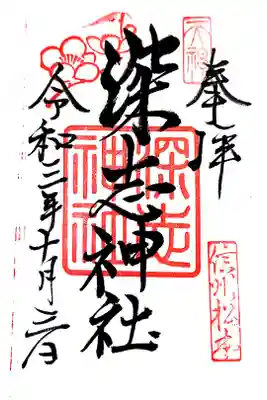 天神
奉拝
信州松本
深志神社
深志神社
令和二年十月三日